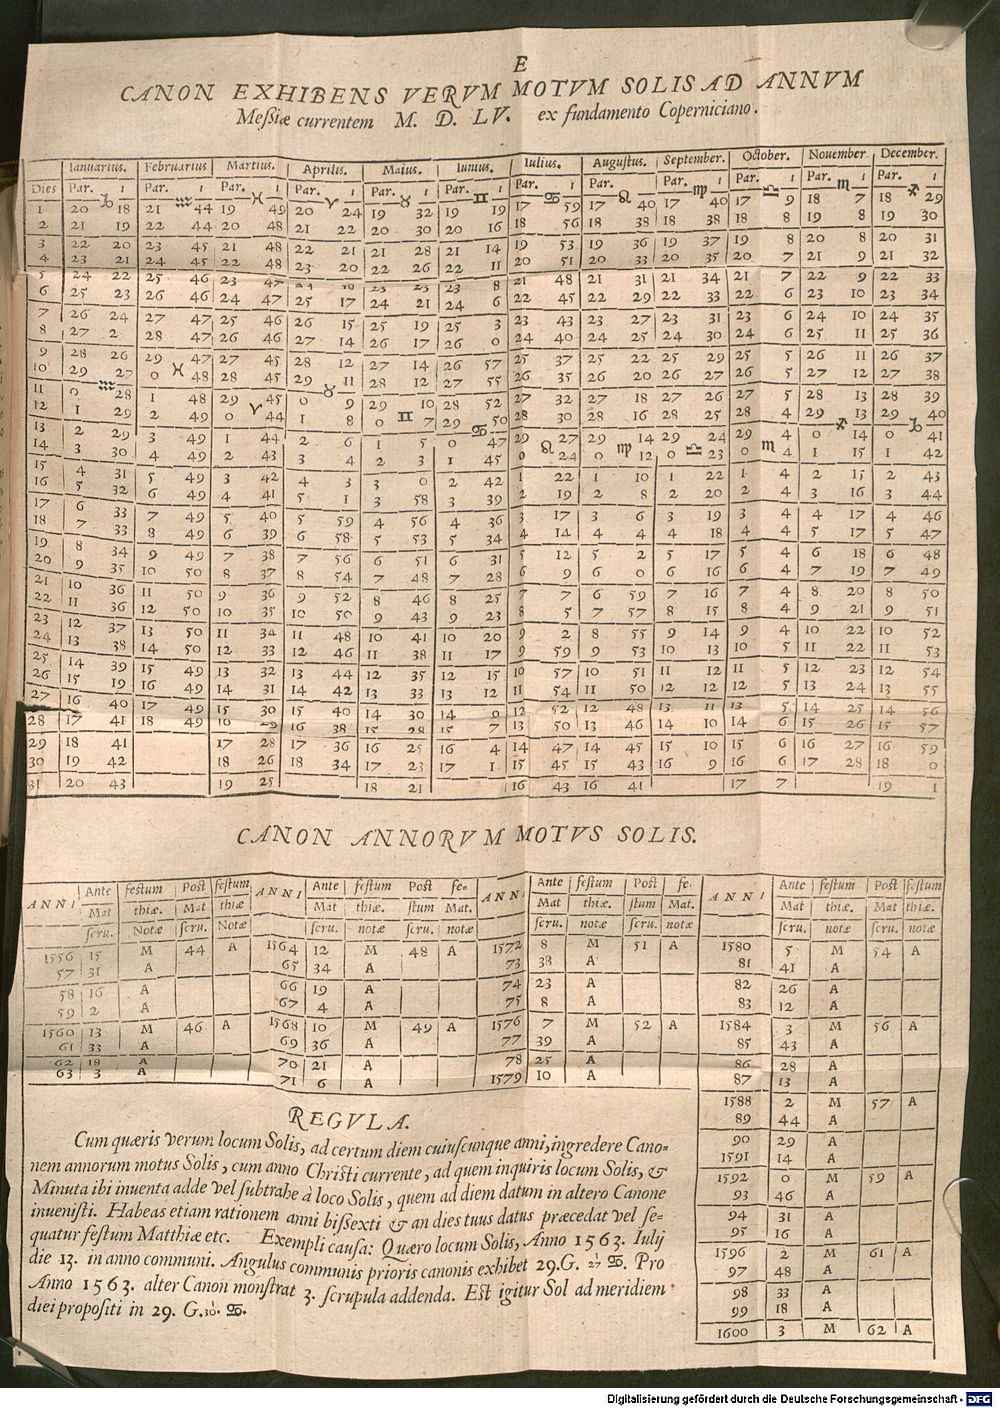 E
CANON EXHIBENS VERVM MOTVM SOLIS AD ANNVM
Messiæ currentem M. D. LV. ex fundamento Coperniciano.
Ianuarius. Februarius Martius. Aprilis. Maius. Iunius. Iulius. Augustus. September. October. Nouember December.
Dies Par. ı ♑ Par. ı ♒ Par. ı ♓ Par. ı ♈ Par. ı ♉ Par. ı ♊ Par. ı ♋ Par. ı ♌ Par. ı ♍ Par. ı ♎ Par. ı ♏ Par. ı ♐
1 20 18 21 44 19 49 20 24 19 32 19 19 17 59 17 40 17 40 17 9 18 7 18 29
2 21 19 22 44 20 48 21 22 20 30 20 16 18 56 18 38 18 38 18 8 19 8 19 30
3 22 20 23 45 21 48 22 21 21 28 21 14 19 53 19 36 19 37 19 8 20 8 20 31
4 23 21 24 45 22 48 23 20 22 26 22 11 20 51 20 33 20 35 20 7 21 9 21 32
5 24 22 25 46 23 47 24 18 23 23 23 8 21 48 21 31 21 34 21 7 22 9 22 33
6 25 23 26 46 24 47 25 17 24 21 24 6 22 45 22 29 22 33 22 6 23 10 23 34
7 26 24 27 47 25 46 26 15 25 19 25 3 23 43 23 27 23 31 23 6 24 10 24 35
8 27 2 28 47 26 46 27 14 26 17 26 0 24 40 24 25 24 30 24 6 25 11 25 36
9 28 26 29 47 27 45 28 12 27 14 26 57 25 37 25 22 25 29 25 5 26 11 26 37
10 29 27 0 ♓ 48 28 45 29 11 28 12 27 55 26 35 26 20 26 27 26 5 27 12 27 38
11 0 ♒ 28 1 48 29 45 0 ♉ 9 29 10 28 52 27 32 27 18 27 26 27 5 28 13 28 39
12 1 29 2 49 0 ♈ 44 1 8 0 ♊ 7 29 50 28 30 28 16 28 25 28 4 29 13 29 40
13 2 29 3 49 1 44 2 6 1 5 0 ♋ 47 29 27 29 14 29 24 29 4 0 ♐ 14 0 ♑ 41
14 3 30 4 49 2 43 3 4 2 3 1 45 0 ♌ 24 0 ♍ 12 0 ♎ 23 0 ♏ 4 1 15 1 42
15 4 31 5 49 3 42 4 3 3 0 2 42 1 22 1 10 1 22 1 4 2 15 2 43
16 5 32 6 49 4 41 5 1 3 58 3 39 2 19 2 8 2 20 2 4 3 16 3 44
17 6 33 7 49 5 40 5 59 4 56 4 36 3 17 3 6 3 19 3 4 4 17 4 46
18 7 33 8 49 6 39 6 58 5 53 5 34 4 14 4 4 4 18 4 4 5 17 5 47
19 8 34 9 49 7 38 7 56 6 51 6 31 5 12 5 2 5 17 5 4 6 18 6 48
20 9 35 10 50 8 37 8 54 7 48 7 28 6 9 6 0 6 16 6 4 7 19 7 49
21 10 36 11 50 9 36 9 52 8 46 8 25 7 7 6 59 7 16 7 4 8 20 8 50
22 11 36 12 50 10 35 10 50 9 43 9 23 8 5 7 57 8 15 8 4 9 21 9 51
23 12 37 13 50 11 34 11 48 10 41 10 20 9 2 8 55 9 14 9 4 10 22 10 52
24 13 38 14 50 12 33 12 46 11 38 11 17 9 59 9 53 10 13 10 5 11 22 11 53
25 14 39 15 49 13 32 13 44 12 35 12 15 10 57 10 51 11 12 11 5 12 23 12 54
26 15 19 16 49 14 31 14 42 13 33 13 12 11 54 11 50 12 12 12 5 13 24 13 55
27 16 40 17 49 15 30 15 40 14 30 14 0 12 52 12 48 13 11 13 5 14 25 14 56
28 17 41 18 49 16 29 16 38 15 28 15 7 13 50 13 46 14 10 14 6 15 26 15 57
29 18 41 17 28 17 36 16 25 16 4 14 47 14 45 15 10 15 6 16 27 16 59
30 19 42 18 26 18 34 17 23 17 1 15 45 15 43 16 9 16 6 17 28 18 0
31 20 43 19 25 18 21 16 43 16 41 17 7 19 1
CANON ANNORVM MOTVS SOLIS.
ANNI Ante festum Post festum ANNI Ante festum Post fe- ANNI Ante festum Post fe- ANNI Ante festum Post festum
Mat thiæ. Mat thiæ Mat thiæ. stum Mat. Mat thiæ. stum Mat. Mat thiæ. Mat thiæ.
scru. Notæ scru. Notæ scru. notæ scru. notæ scru. notæ scru. notæ scru. notæ scru. notæ
1556 15 M 44 A 1564 12 M 48 A 1572 8 M 51 A 1580 5 M 54 A
57 31 A 65 34 A 73 38 A 81 41 A
58 16 A 66 19 A 74 23 A 82 26 A
59 2 A 67 4 A 75 8 A 83 12 A
1560 13 M 46 A 1568 10 M 49 A 1576 7 M 52 A 1584 3 M 56 A
61 33 A 69 36 A 77 39 A 85 43 A
62 18 A 70 21 A 78 25 A 86 28 A
63 3 A 71 6 A 1579 10 A 87 13 A
1588 2 M 57 A
89 44 A
90 29 A
1591 14 A
1592 0 M 59 A
93 46 A
94 31 A
95 16 A
1596 2 M 61 A
97 48 A
98 33 A
99 18 A
1600 3 M 62 A
REGVLA.
Cum quæris verum locum Solis, ad certum diem cuiuscunque anni, ingredere Cano-
nem annorum motus Solis, cum anno Christi currente, ad quem inquiris locum Solis, &
Minuta ibi inuenta adde vel subtrahe à loco Solis, quem ad diem datum in altero Canone
inuenisti. Habeas etiam rationem anni bissexti & an dies tuus datus præcedat vel se-
quatur festum Matthiæ etc. Exempli causa: Quæro locum Solis, Anno 1563. Iulij
die 13. in anno communi. Angulus communis prioris canonis exhibet 29.G. 27 ı ♋. Pro
Anno 1563. alter Canon monstrat 3. scrupula addenda. Est igitur Sol ad meridiem
diei propositi in 29. G. 30 ı. ♋.
Digitalisierung gefördert durch die Deutsche Forschungsgemeinschaft - DFG